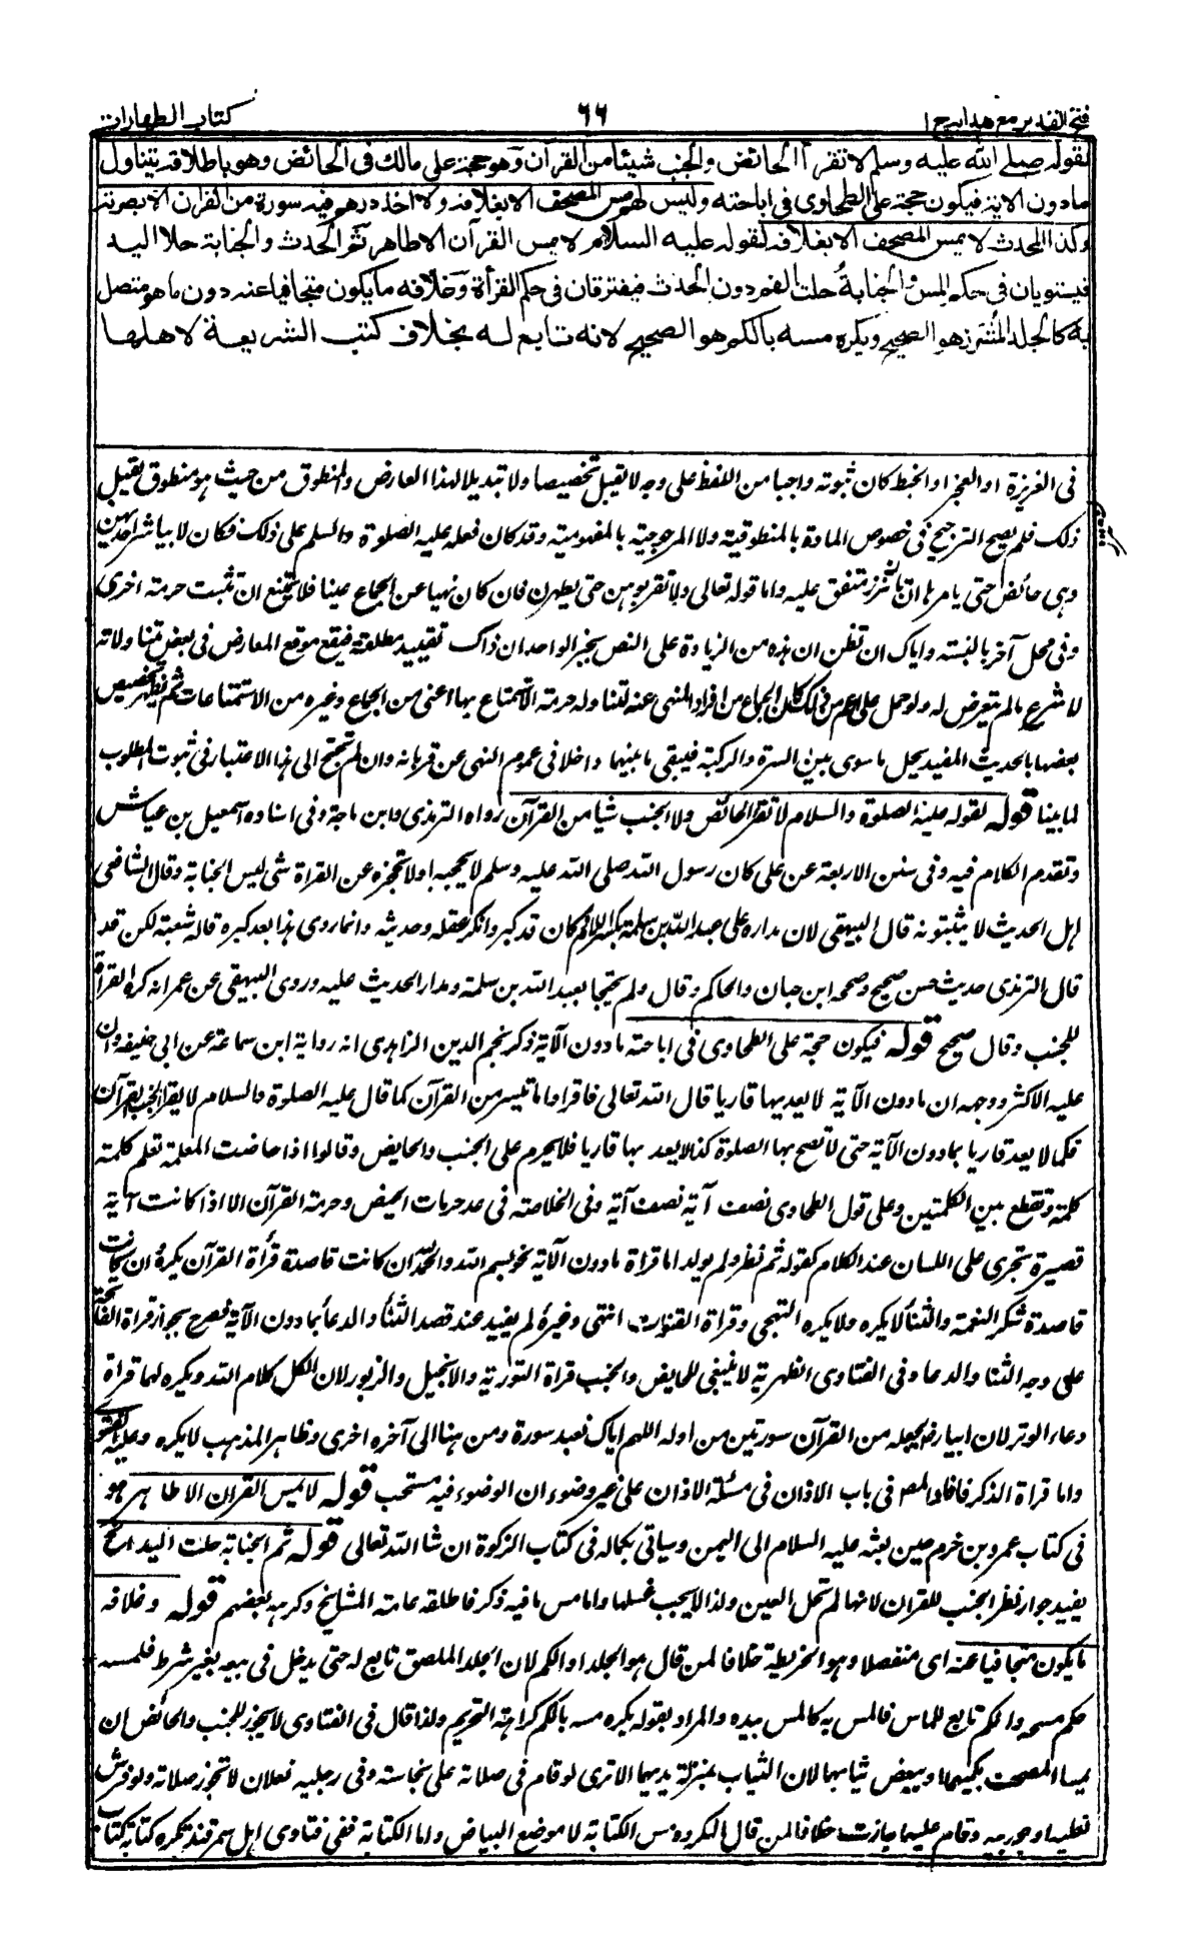 فتح القدير مع هدايه ج ا
٦٦
كتاب الطهارات
لقوله صلے الله عليه وسلم لا تقرأ الحائض والجنب شيئا من القرآن وهو حجة على مالك فى الحائض وهو باطلاقه يتناول
مادون الآية فيكون حجة على الطحاوى فى اباحته وليس لهم مس المصحف الا بغلافه ولا اخذ درهم فيه سورة من القرآن الا بصرته
وكذا المحدث لا يمس المصحف الا بغلافه لقوله عليه السلام لا يمس القرآن الا طاهر ثم الحدث والجنابة حلا اليد
فيستويان فى حكم المس والجنابة حلت الفم دون الحدث فيفترقان فى حكم القرأة وغلافه ما يكون متجافيا عنه دون ما هو متصل
به كالجلد المشرز هو الصحيح ويكره مسه بالكم هو الصحيح لانه تابع له بخلاف كتب الشريعة لاهلها
فى الغريزة او العجز او الخبط كان ثبوته واجبا من اللفظ على وجه لا يقبل تخصيصا ولا تبديلا لهذا العارض والمنطوق من حيث هو منطوق يقبل
ذلك فلم يصح الترجيح فى خصوص المادة بالمنطوقية ولا المرجوحية بالمفهومية وقد كان فعله عليه الصلوة والسلم على ذلك فكان لا يباشر احديهن
وهى حائض حتى يامرها ان تأتزر متفق عليه واما قوله تعالى ولا تقربوهن حتى يطهرن فان كان نهيا عن الجماع عينا فلا يمتنع ان تثبت حرمة اخرى
وفى محل آخر بالسنة واياك ان تظن ان هذه من الزيادة على النص بخبر الواحد ان ذاك تقييد مطلقه فيقع موقع المعارض فى بعض متناولاته
لا شرع مالم يتعرض له ولو حمل على اعم من ذلك كان الجماع من افراد المنهى عنه لتناوله حرمة الاستمتاع بها اعنى من الجماع وغيره من الاستمتاعات ثم يظهر تخصيص
بعضها بالحديث المفيد بحل ما سوى بين السرة والركبة فيبقى ما بينهما داخلا فى عموم النهى عن قربانه وان لم تحتج الى هذا الاعتبار فى ثبوت المطلوب
لما بينا قوله لقوله عليه الصلوة والسلام لا تقرأ الحائض ولا الجنب شيا من القرآن رواه الترمذى وابن ماجة وفى اسناده اسمعيل بن عياش
وتقدم الكلام فيه وفى سنن الاربعة عن على كان رسول الله صلى الله عليه وسلم لا يحجبه اولا تحجزه عن القراة شى ليس الجنابة وقال الشافعى
اهل الحديث لا يثبتونه قال البيهقى لان مداره على عبد الله بن سلمة بكسر اللام كان قد كبر وانكر عقله وحديثه وانما روى هذا بعد كبره قاله شعبة لكن قد
قال الترمذى حديث حسن صحيح وصححه ابن حبان والحاكم وقال ولم يحتجا بعبد الله بن سلمة ومدار الحديث عليه وروى البيهقى عن عمر انه كره القراة
للجنب وقال صحيح قوله فيكون حجة على الطحاوى فى اباحته مادون الآية ذكر نجم الدين الزاهدى انه رواية ابن سماعة عن ابى حنيفه وان
عليه الاكثر ووجهه ان مادون الآية لا يعد بها قاريا قال الله تعالى فاقرءوا ما تيسر من القرآن كما قال عليه الصلوة والسلام لا يقرا الجنب القرآن
فكما لا يعد قاريا بمادون الآية حتى لا تصح بها الصلوة كذا لا يعد بها قاريا فلا يحرم على الجنب والحايض وقالوا اذا حاضت المعلمة تعلم كلمة
كلمة وتقطع بين الكلمتين وعلى قول الطحاوى نصف آية نصف آية وفى الخلاصة فى عد حرمات الحيض وحرمة القرآن الا اذا كانت آية
قصيرة تجرى على اللسان عند الكلام كقوله ثم نظر ولم يولد اما قراة مادون الآية نحو بسم الله والحمد لله ان كانت قاصدة قرأة القرآن يكره وان كانت
قاصدة شكر النعمة والثنا لا يكره ولا يكره التهجى وقراة القنوت انتهى وغيره لم يقيد عند قصد الثنا والدعا بمادون الآية فصرح بجواز قراة الفاتحة
على وجه الثنا والدعا وفى الفتاوى الظهرية لا ينبغى للحايض والجنب قراة التورية والانجيل والزبور لان الكل كلام الله ويكره لهما قراة
دعاء الوتر لان ابيا رضه يجعله من القرآن سورتين من اوله اللهم اياك نعبد سورة ومن هنا الى آخره اخرى وظاهر المذهب لا يكره وعليه الفتوى
واما قراة الذكر فافاد المص فى باب الاذان فى مسئلة الاذان على غير وضوء ان الوضوء فيه مستحب قوله لا يمس القرآن الا طاهر هو
فى كتاب عمرو بن حزم حين بعثه عليه السلام الى اليمن وسياتى بكماله فى كتاب الزكوة ان شا الله تعالى قوله ثم الجنابة حلت اليد الخ
يفيد جواز نظر الجنب للقران لانها لم تحل العين ولذا لا يجب غسلها واما مس ما فيه ذكر فاطلقه عامة المشايخ وكرهه بعضهم قوله وغلافه
ما يكون متجافيا عنه اى منفصلا وهو الخريطة خلافا لمن قال هو الجلد او الكم لان الجلد الملصق تابع له حتى يدخل فى بيعه بغير شرط فلمسه
حكم مسه والكم تابع للماس فالمس به كالمس بيده والمراد بقوله يكره مسه بالكم كراهة التحريم ولذا قال فى الفتاوى لا يجوز للجنب والحائض ان
يمسا المصحف بكميهما او ببعض ثيابهما لان الثياب بمنزلة يديهما الا ترى لو قام فى صلاته على نجاسة وفى رجليه نعلان لا تجوز صلاته ولو فرش
نعليه او جوربيه وقام عليهما جازت خلافا لمن قال المكروه مس الكتابة لا موضع البياض واما الكتابة ففى فتاوى اهل سمرقند يكره كتابة كتاب